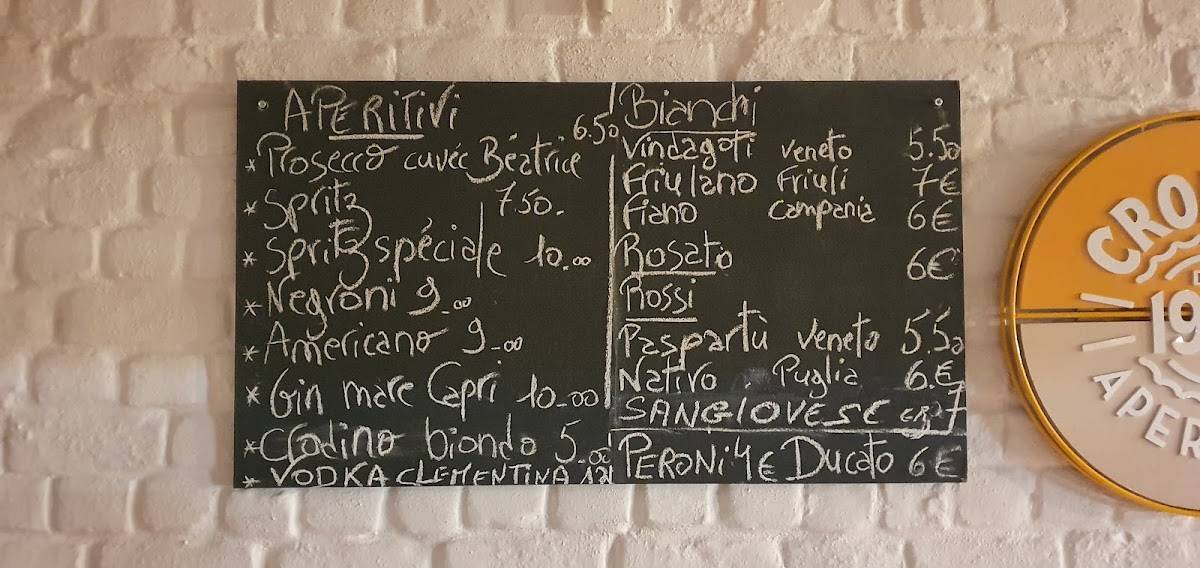 APERITIVI
6.50
* Prosecco cuvée Béatrice
* Spritz 7.50-
* Spritz spéciale 10.00
* Negroni 9-00
* Americano 9-00
* Gin mare Capri 10-00
* Crodino biondo 5-00
* VODKA CLEMENTINA
Bianchi
Vindagoti veneto 5.50
Friulano Friuli 7€
Fiano campania 6€
Rosato 6€
Rossi
Paspartù veneto 5.50
Nativo. Puglia 6.€
SANGIOVESE 7
PERONi 4€ Ducato 6€
CRO
19
APER